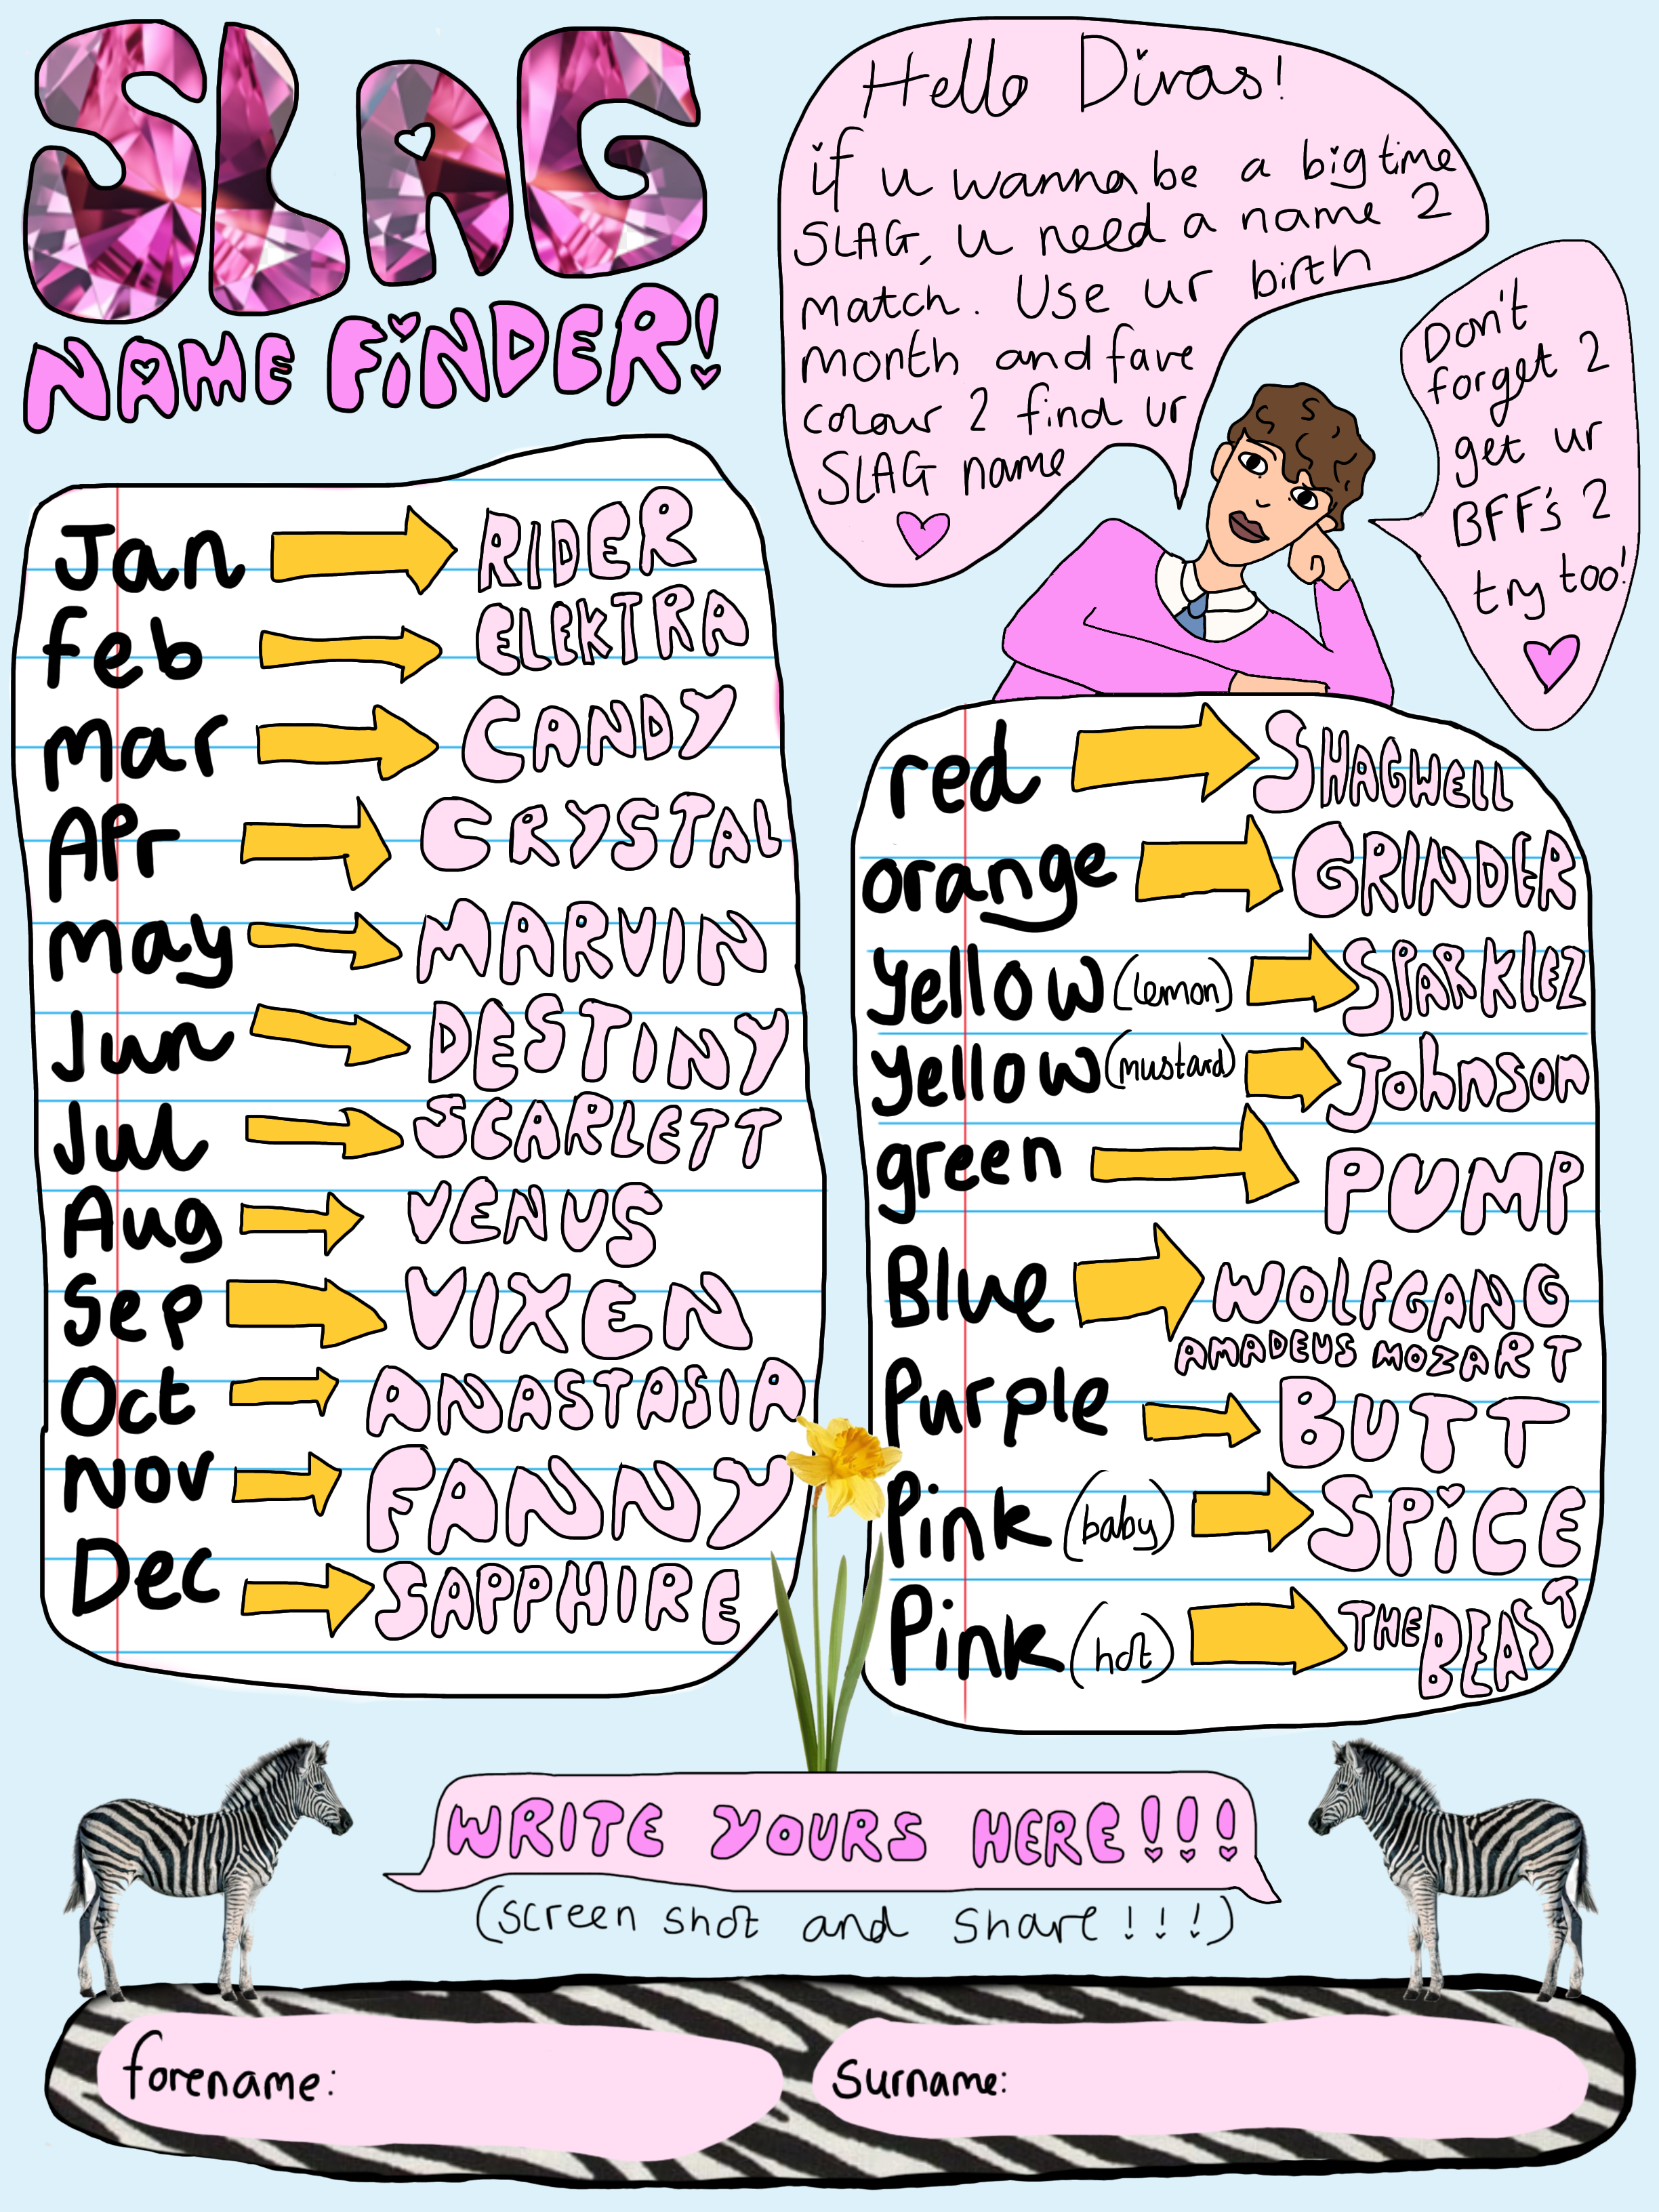 SLAG
NAME FiNDER!
Hello Divas!
if u wanna be a big time
SLAG, u need a name 2
match. Use ur birth
month and fave
colour 2 find ur
SLAG name
Don't
forget 2
get ur
BFF's 2
try too!
Jan RIDER
feb ELEKTRA
mar CANDY
Apr CRYSTAL
may MARVIN
Jun DESTINY
Jul SCARLETT
Aug VENUS
Sep VIXEN
Oct ANASTASIA
Nov FANNY
Dec SAPPHIRE
red SHAGWELL
orange GRINDER
yellow (lemon) SPARKLEZ
yellow (mustard) Johnson
green PUMP
Blue WOLFGANG
AMADEUS MOZART
Purple BUTT
Pink (baby) SPiCE
Pink (hot) THE BEAST
WRITE YOURS HERE!!!
(screen shot and share!!!)
forename:
surname: